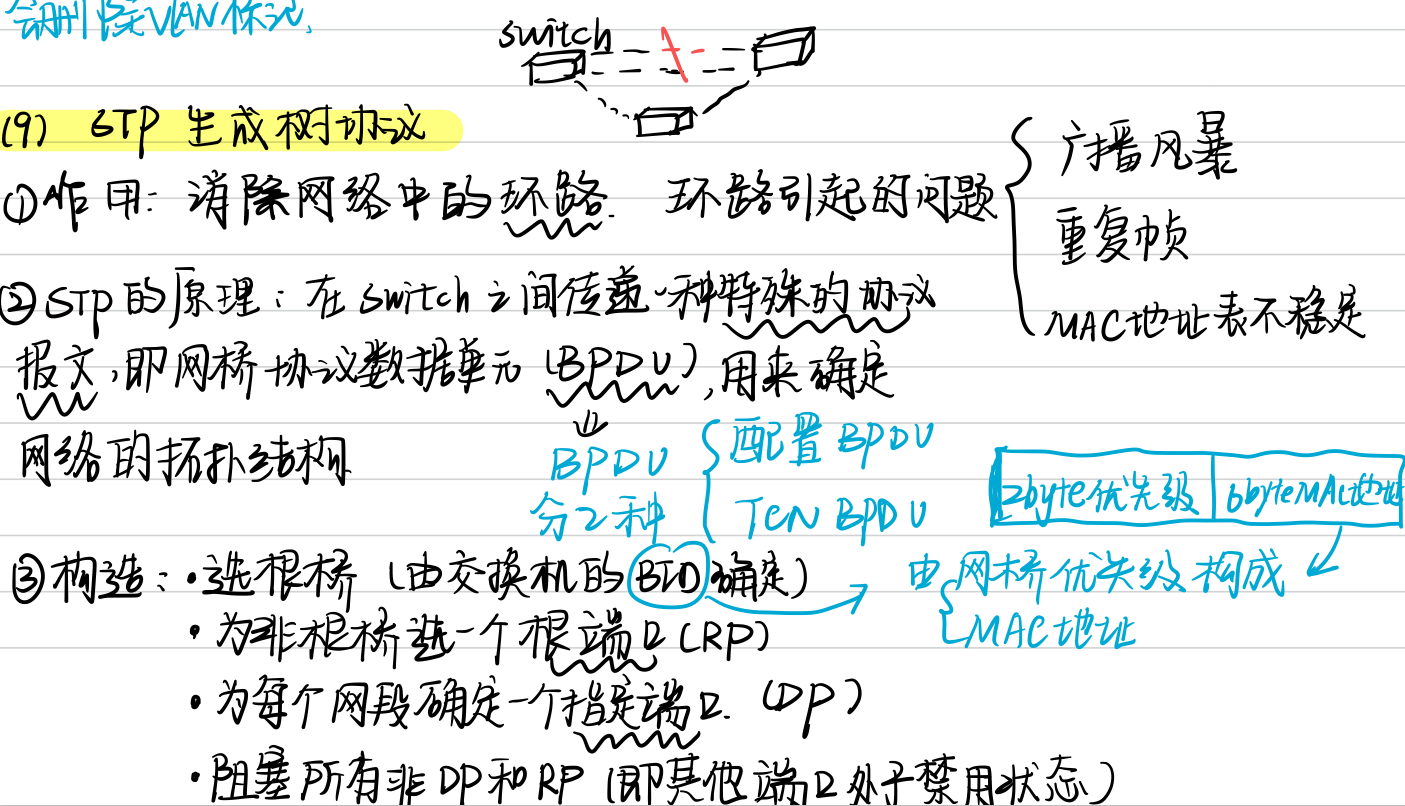 会删除VLAN标记,
switch
(9) STP 生成树协议
①作用: 消除网络中的环路. 环路引起的问题
广播风暴
重复帧
MAC地址表不稳定
②STP的原理: 在switch之间传递一种特殊的协议
报文,即网桥协议数据单元(BPDU),用来确定
网络的拓扑结构
BPDU
分2种
配置BPDU
TCN BPDU
2byte优先级 6byteMAC地址
③构造: ·选根桥 (由交换机的BID确定)
由 网桥优先级 构成
MAC地址
·为非根桥选一个根端口(RP)
·为每个网段确定一个指定端口. (DP)
·阻塞所有非DP和RP (即其他端口处于禁用状态)